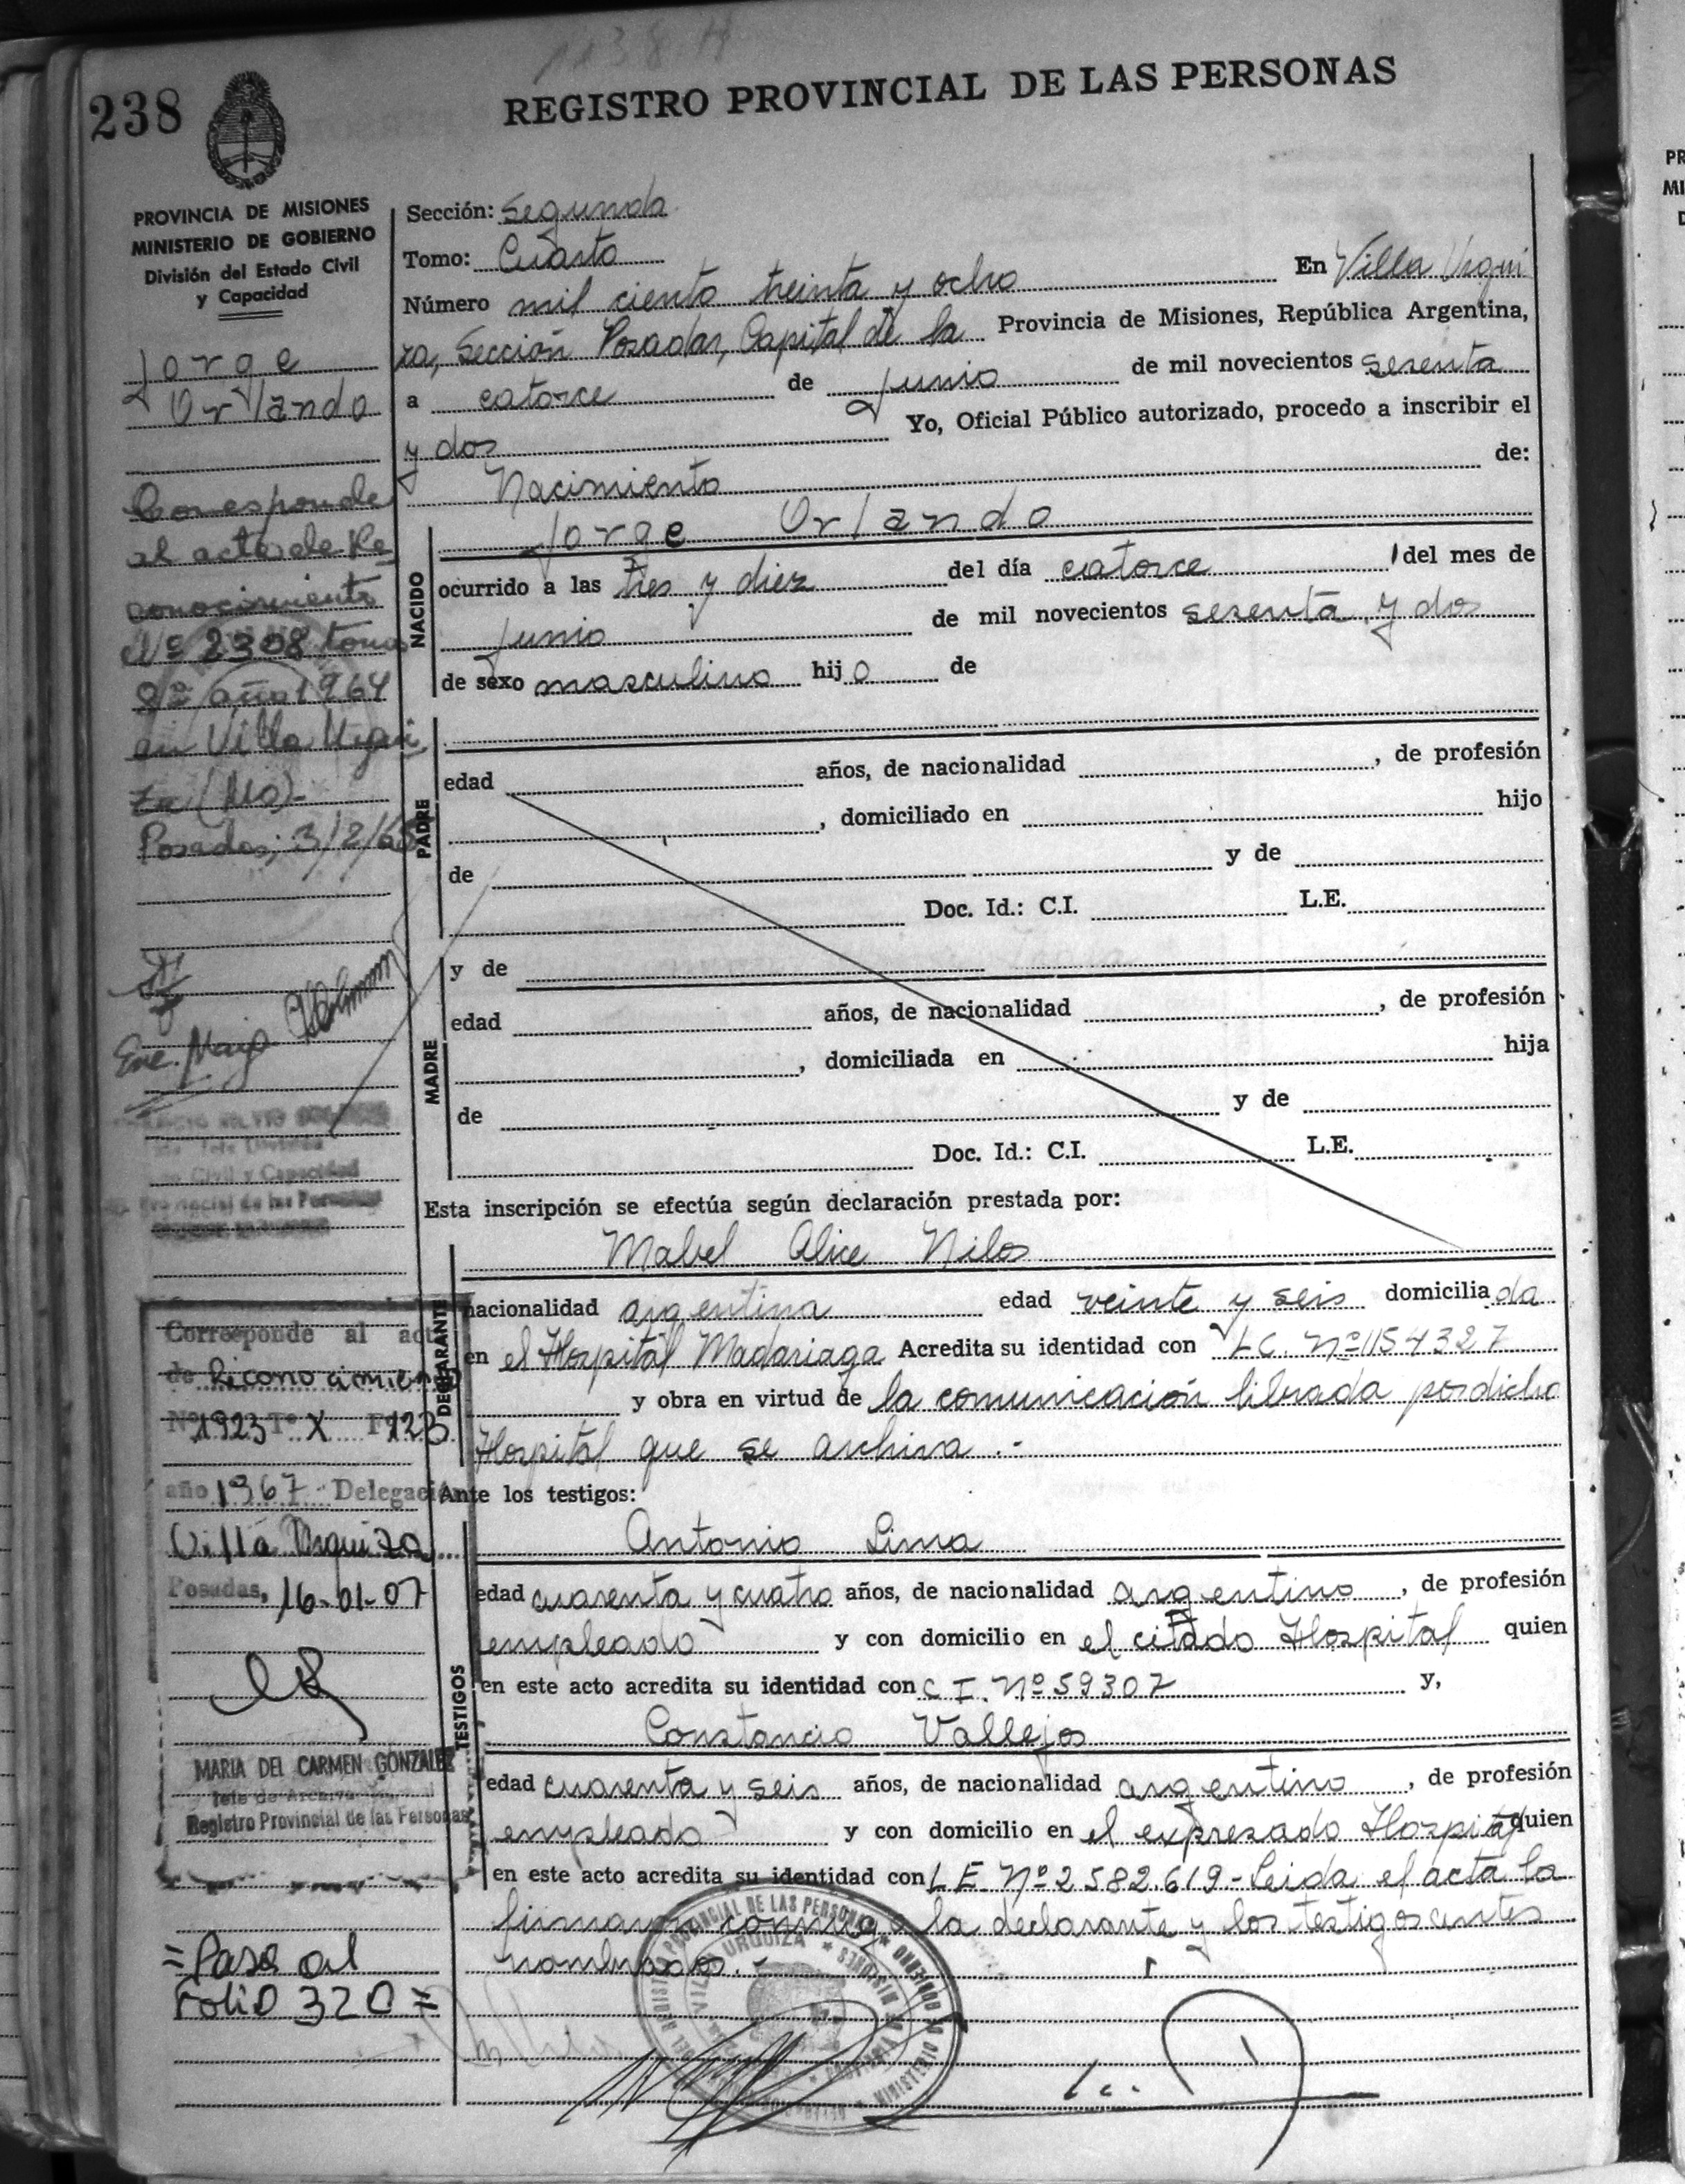 1138 H
238
REGISTRO PROVINCIAL DE LAS PERSONAS
PROVINCIA DE MISIONES
MINISTERIO DE GOBIERNO
División del Estado Civil
y Capacidad
Jorge
Orlando
Corresponde
al acta de Re
conocimiento
Nº 2308 tomo
8º año 1964
en Villa Urqui
za (Mo)-
Posadas, 3/2/65
Civil y Capacidad
Provincial de las Personas
Corresponde al acta
de Reconocimiento
Nº 1923 Tº X Fº 123
año 1967 - Delegación
Villa Urquiza
Posadas, 16-01-07
MARIA DEL CARMEN GONZALEZ
Jefe de Archivo
Registro Provincial de las Personas
=Pasa al
Folio 320=
Sección: Segunda
Tomo: Cuarto
Número mil ciento treinta y ocho En Villa Urqui
za, Sección Posadas, Capital de la Provincia de Misiones, República Argentina,
a catorce de junio de mil novecientos sesenta
y dos Yo, Oficial Público autorizado, procedo a inscribir el
Nacimiento de:
NACIDO
Jorge Orlando
ocurrido a las tres y diez del día catorce del mes de
junio de mil novecientos sesenta y dos
de sexo masculino hijo de
PADRE
edad años, de nacionalidad , de profesión
, domiciliado en hijo
de y de
Doc. Id.: C.I. L.E.
MADRE
y de
edad años, de nacionalidad , de profesión
, domiciliada en hija
de y de
Doc. Id.: C.I. L.E.
Esta inscripción se efectúa según declaración prestada por:
DECLARANTE
Mabel Alice Nilos
nacionalidad argentina edad veinte y seis domiciliada
en el Hospital Madariaga Acredita su identidad con LC. Nº 1154327
y obra en virtud de la comunicación librada por dicho
Hospital que se archiva.-
Ante los testigos:
TESTIGOS
Antonio Lima
edad cuarenta y cuatro años, de nacionalidad argentino, de profesión
empleado y con domicilio en el citado Hospital quien
en este acto acredita su identidad con C I. Nº 59307 y,
Constancio Vallejos
edad cuarenta y seis años, de nacionalidad argentino, de profesión
empleado y con domicilio en el expresado Hospital quien
en este acto acredita su identidad con L E Nº 2582.619- Leida el acta la
firman conmigo la declarante y los testigos antes
nombrados.-
VILLA URQUIZA